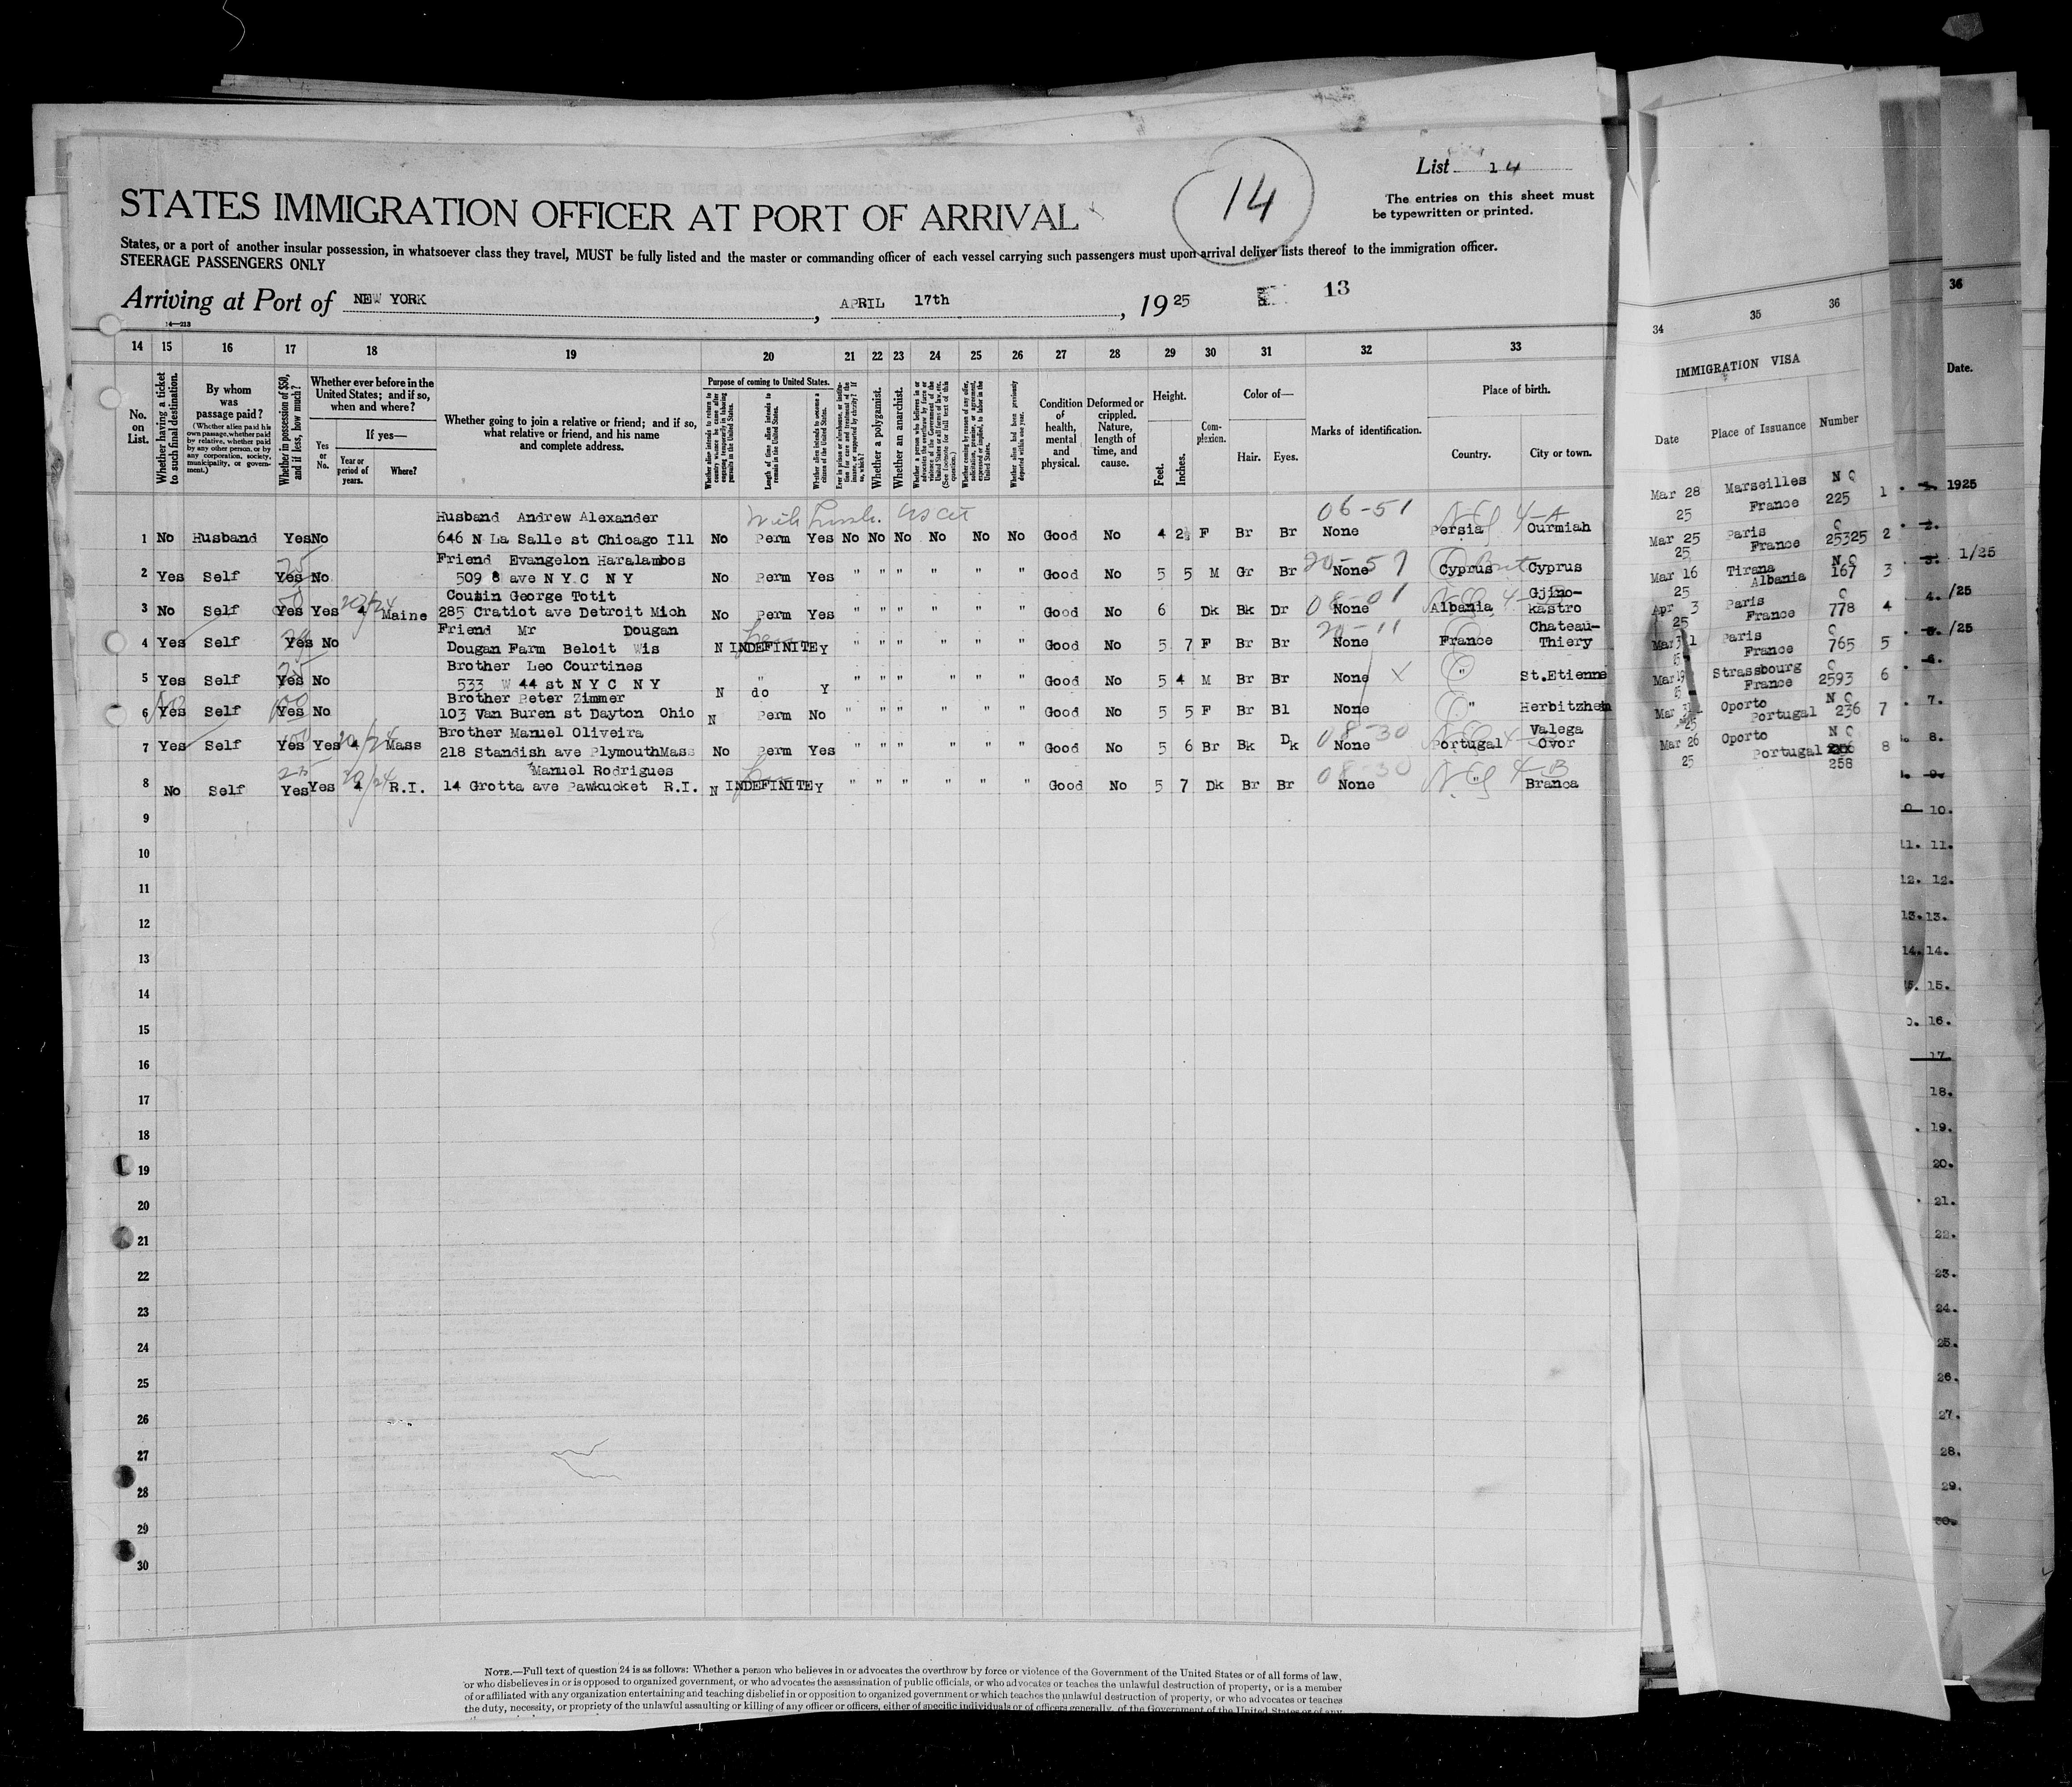 List 14
14
The entries on this sheet must
be typewritten or printed.
STATES IMMIGRATION OFFICER AT PORT OF ARRIVAL
States, or a port of another insular possession, in whatsoever class they travel, MUST be fully listed and the master or commanding officer of each vessel carrying such passengers must upon arrival deliver lists thereof to the immigration officer.
STEERAGE PASSENGERS ONLY
Arriving at Port of NEW YORK, APRIL 17th, 1925 13
14—213
14 15 16 17 18 19 20 21 22 23 24 25 26 27 28 29 30 31 32 33 34 35 36 36
No. on List.
Whether having a ticket to such final destination.
By whom was passage paid?
(Whether alien paid his own passage, whether paid by relative, whether paid by any other person, or by any corporation, society, municipality, or government.)
Whether in possession of $50, and if less, how much?
Whether ever before in the United States; and if so, when and where?
Yes or No.
If yes—
Year or period of years.
Where?
Whether going to join a relative or friend; and if so, what relative or friend, and his name and complete address.
Purpose of coming to United States.
Length of time alien intends to remain in the United States.
Whether alien intends to become a citizen of the United States.
Whether a polygamist.
Whether an anarchist.
Condition of health, mental and physical.
Deformed or crippled. Nature, length of time, and cause.
Height.
Feet. Inches.
Complexion.
Color of—
Hair. Eyes.
Marks of identification.
Place of birth.
Country. City or town.
IMMIGRATION VISA
Date Place of Issuance Number
Date.
With husb. US Cit
06-51
Husband Andrew Alexander
1 No Husband Yes No 646 N La Salle st Chicago Ill No Perm Yes No No No No No No Good No 4 2½ F Br Br None Persia Ourmiah Mar 28 25 Marseilles France N Q 225 1
Friend Evangelon Haralambos
2 Yes Self Yes No 509 8 ave N Y C N Y No Perm Yes " " " " " " Good No 5 5 M Gr Br None Cyprus Cyprus Mar 25 25 Paris France 25325 2
Cousin George Totit
3 No Self Yes Yes Maine 285 Cratiot ave Detroit Mich No Perm Yes " " " " " " Good No 6 Dk Bk Dr None Albania Gjino-kastro Mar 16 25 Tirana Albania N Q 167 3
Friend Mr Dougan
4 Yes Self Yes No Dougan Farm Beloit Wis N INDEFINITE Y " " " " " " Good No 5 7 F Br Br None France Chateau-Thiery Apr 3 25 Paris France 778 4
Brother Leo Courtines
5 Yes Self Yes No 533 W 44 st N Y C N Y N do Y " " " " " " Good No 5 4 M Br Br None " St.Etienne Mar 31 Paris France 765 5
Brother Peter Zimmer
6 Yes Self Yes No 103 Van Buren st Dayton Ohio N Perm No " " " " " " Good No 5 5 F Br Bl None " Herbitzhem Mar 19 Strassbourg France 2593 6
Brother Manuel Oliveira
7 Yes Self Yes Yes Mass 218 Standish ave Plymouth Mass No Perm Yes " " " " " " Good No 5 6 Br Bk Dk None Portugal Valega Ovor Mar 25 Oporto Portugal N Q 236 7
Manuel Rodrigues
8 No Self Yes Yes R.I. 14 Grotta ave Pawkucket R.I. N INDEFINITE Y " " " " " " Good No 5 7 Dk Br Br None " Branca Mar 26 25 Oporto Portugal N Q 258 8
9
10
11
12
13
14
15
16
17
18
19
20
21
22
23
24
25
26
27
28
29
30
1925
1/25
/25
/25
NOTE.—Full text of question 24 is as follows: Whether a person who believes in or advocates the overthrow by force or violence of the Government of the United States or of all forms of law,
or who disbelieves in or is opposed to organized government, or who advocates the assassination of public officials, or who advocates or teaches the unlawful destruction of property, or is a member
of or affiliated with any organization entertaining and teaching disbelief in or opposition to organized government or which teaches the unlawful destruction of property, or who advocates or teaches
the duty, necessity, or propriety of the unlawful assaulting or killing of any officer or officers, either of specific individuals or of officers generally, of the Government of the United States or of any